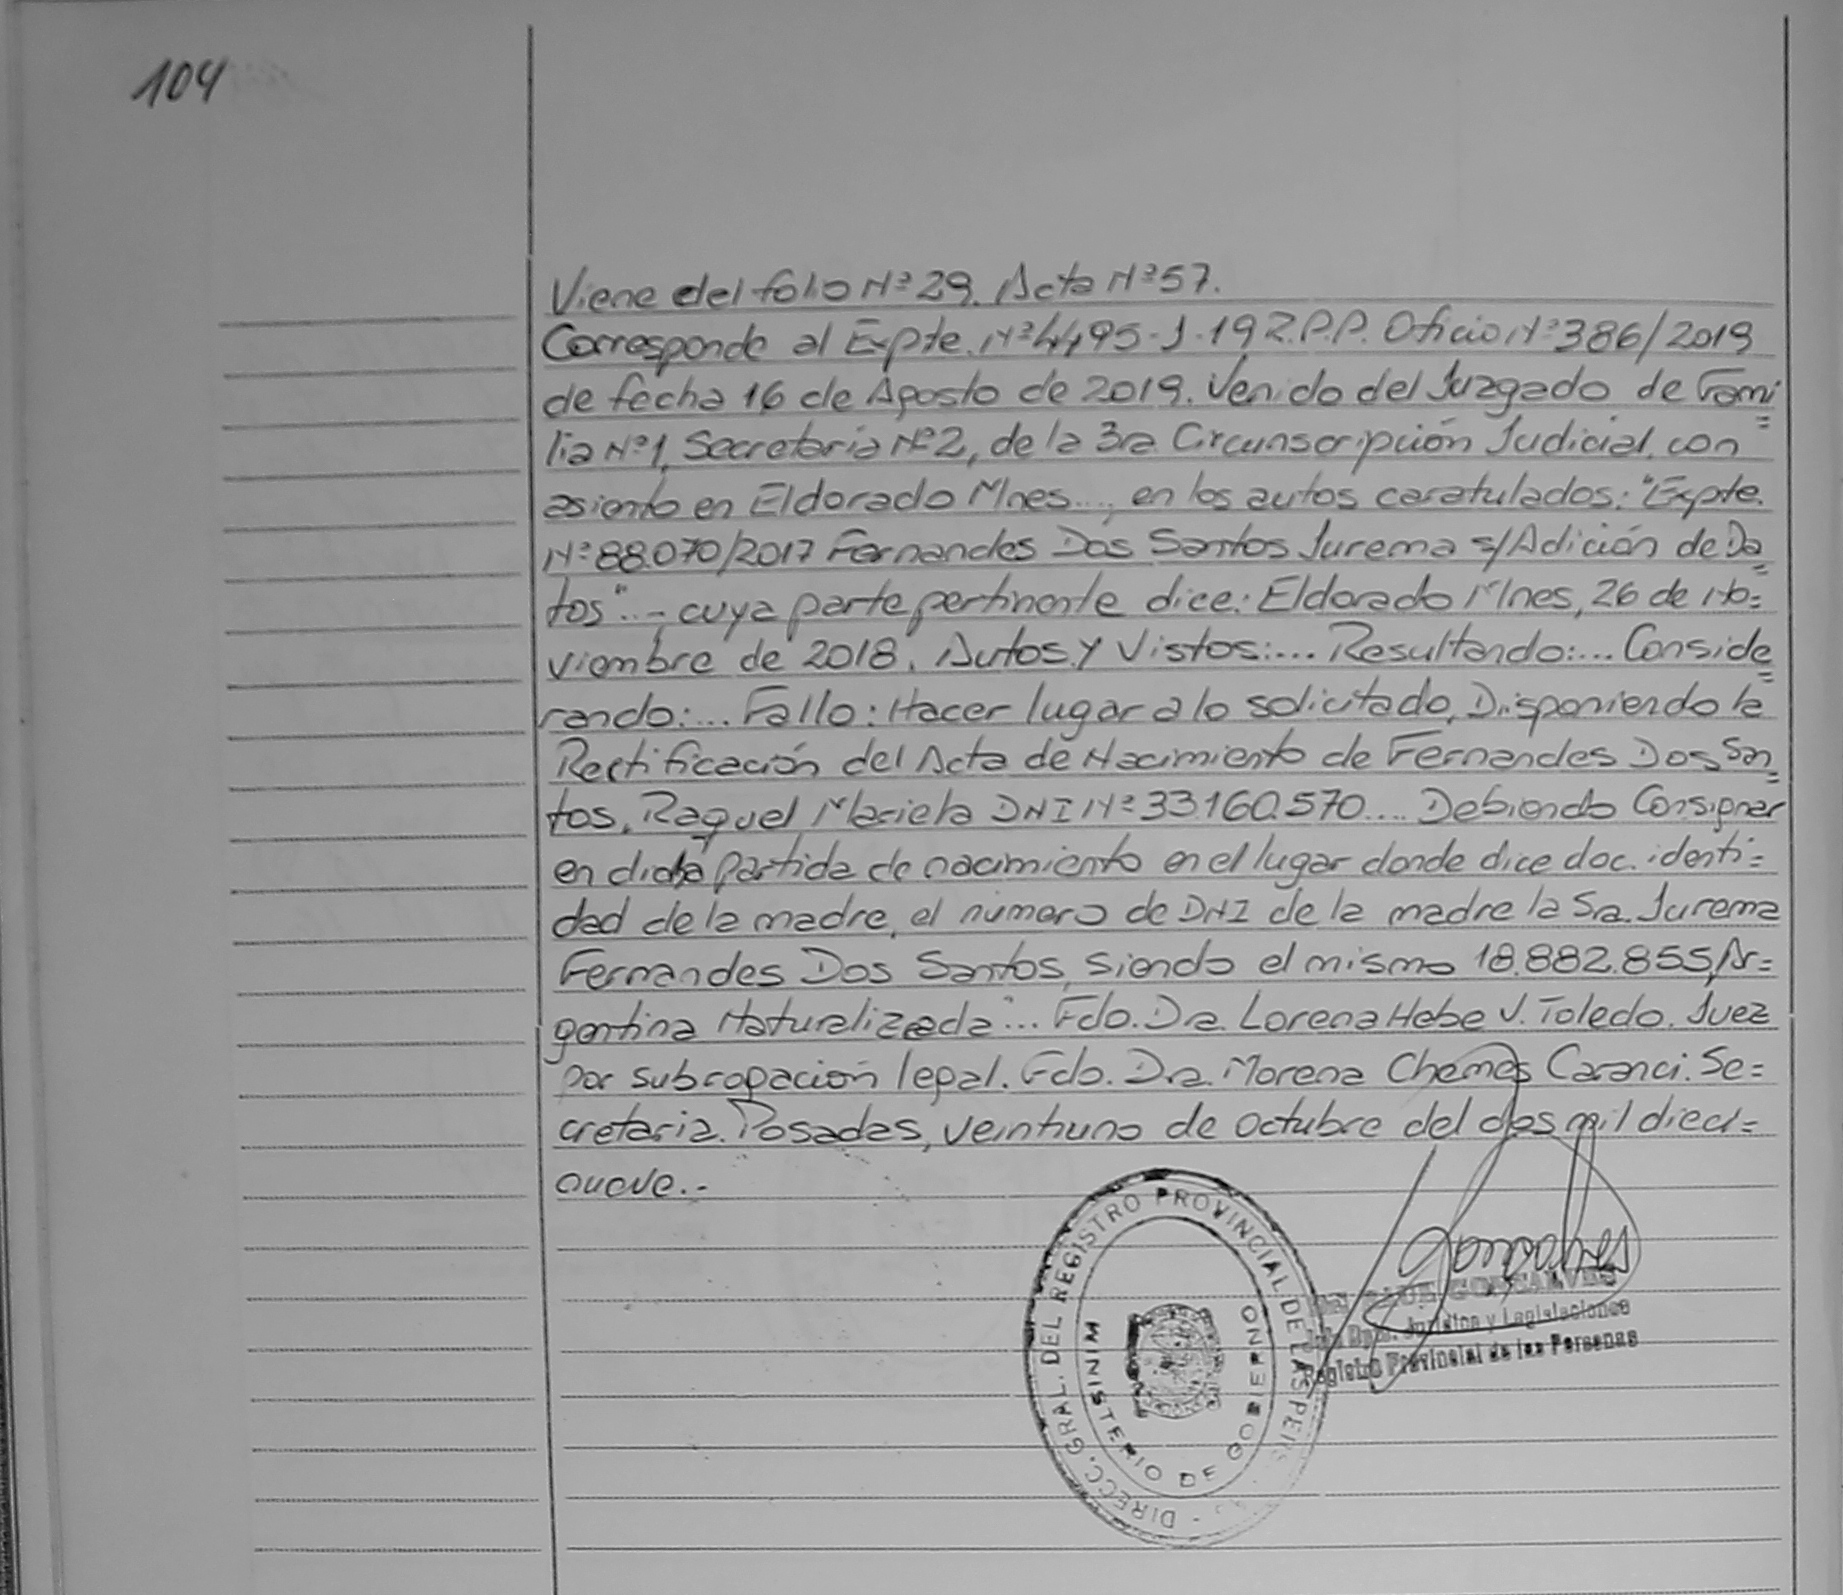 104
Viene del folio Nº 29. Acta Nº 57.
Corresponde al Expte. Nº 4495-J-19 R.P.P. Oficio Nº 386/2019
de fecha 16 de Agosto de 2019. Venido del Juzgado de Fami=
lia Nº 1, Secretaria Nº 2, de la 3ra Circunscripción Judicial, con
asiento en Eldorado Mnes..., en los autos caratulados: "Expte.
Nº 88.070/2017 Fernandes Dos Santos Jurema s/Adición de Da=
tos"... - cuya parte pertinente dice: Eldorado Mnes, 26 de No=
viembre de 2018. Autos y Vistos:... Resultando:... Conside=
rando:... Fallo: Hacer lugar a lo solicitado, Disponiendo la
Rectificación del Acta de Nacimiento de Fernandes Dos San=
tos, Raquel Mariela DNI Nº 33.160.570.... Debiendo Consignar
en dicha partida de nacimiento en el lugar donde dice doc. identi=
dad de la madre, el número de DNI de la madre la Sra. Jurema
Fernandes Dos Santos, siendo el mismo 18.882.855, Ar=
gentina Naturalizada"... Fdo. Dra. Lorena Hebe V. Toledo. Juez
por subrogación legal. Fdo. Dra. Morena Chemes Caranci. Se=
cretaria. Posadas, veintiuno de octubre del dos mil dieci=
nueve.-
DIRECC. GRAL. DEL REGISTRO PROVINCIAL DE LAS PERS
MINISTERIO DE GOBIERNO
GONZALVES
Jefa Dpto. Jurídico y Legislaciones
Registro Provincial de las Personas